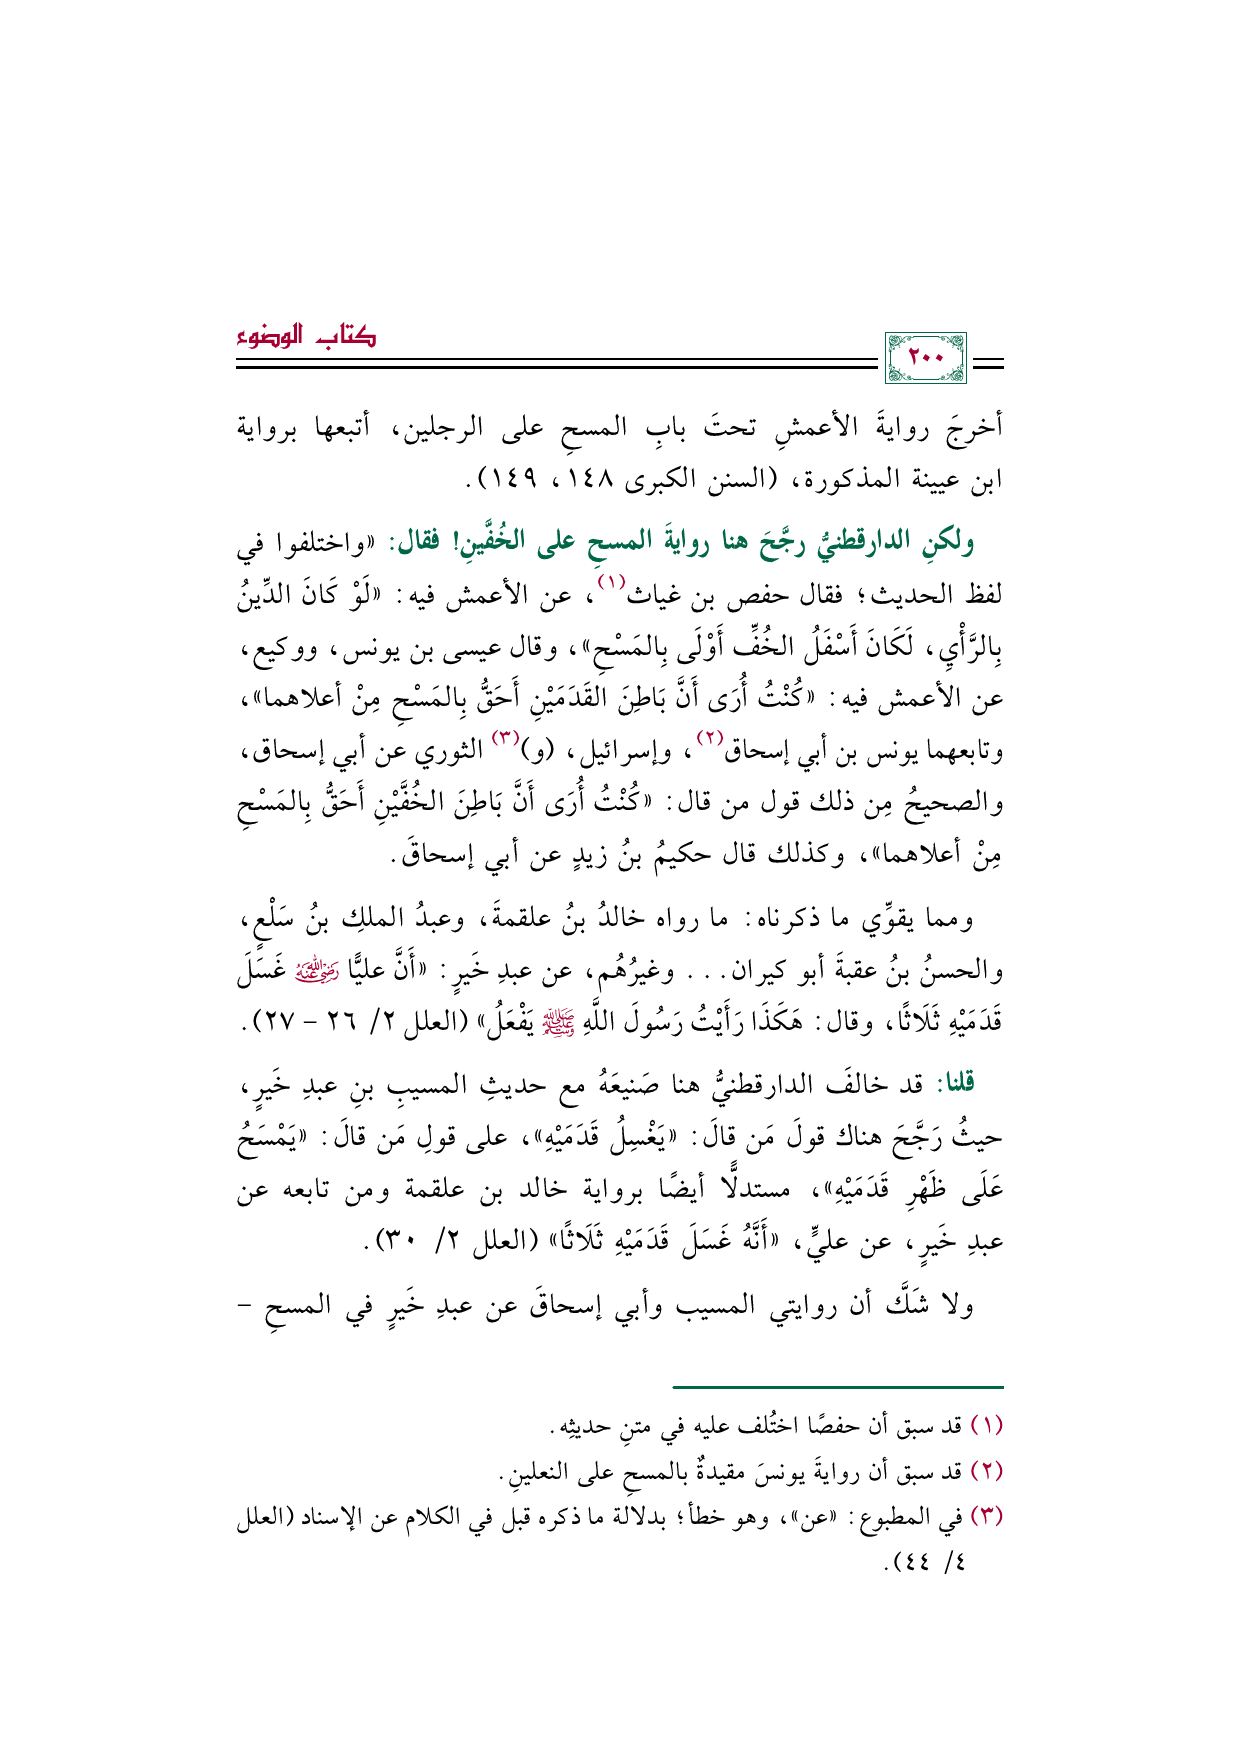 كتاب الوضوء
٢٠٠
أخرجَ روايةَ الأعمشِ تحتَ بابِ المسحِ على الرجلين، أتبعها برواية
ابن عيينة المذكورة، (السنن الكبرى ١٤٨، ١٤٩).
ولكنِ الدارقطنيُّ رجَّحَ هنا روايةَ المسحِ على الخُفَّينِ! فقال: «واختلفوا في
لفظ الحديث؛ فقال حفص بن غياث(١)، عن الأعمش فيه: «لَوْ كَانَ الدِّينُ
بِالرَّأْيِ، لَكَانَ أَسْفَلُ الخُفِّ أَوْلَى بِالمَسْحِ»، وقال عيسى بن يونس، ووكيع،
عن الأعمش فيه: «كُنْتُ أُرَى أَنَّ بَاطِنَ القَدَمَيْنِ أَحَقُّ بِالمَسْحِ مِنْ أعلاهما»،
وتابعهما يونس بن أبي إسحاق(٢)، وإسرائيل، (و)(٣) الثوري عن أبي إسحاق،
والصحيحُ مِن ذلك قول من قال: «كُنْتُ أُرَى أَنَّ بَاطِنَ الخُفَّيْنِ أَحَقُّ بِالمَسْحِ
مِنْ أعلاهما»، وكذلك قال حكيمُ بنُ زيدٍ عن أبي إسحاقَ.
ومما يقوِّي ما ذكرناه: ما رواه خالدُ بنُ علقمةَ، وعبدُ الملكِ بنُ سَلْعٍ،
والحسنُ بنُ عقبةَ أبو كيران... وغيرُهُم، عن عبدِ خَيرٍ: «أَنَّ عليًّا رضي الله عنه غَسَلَ
قَدَمَيْهِ ثَلَاثًا، وقال: هَكَذَا رَأَيْتُ رَسُولَ اللَّهِ ﷺ يَفْعَلُ» (العلل ٢/ ٢٦ - ٢٧).
قلنا: قد خالفَ الدارقطنيُّ هنا صَنيعَهُ مع حديثِ المسيبِ بنِ عبدِ خَيرٍ،
حيثُ رَجَّحَ هناك قولَ مَن قالَ: «يَغْسِلُ قَدَمَيْهِ»، على قولِ مَن قالَ: «يَمْسَحُ
عَلَى ظَهْرِ قَدَمَيْهِ»، مستدلًّا أيضًا برواية خالد بن علقمة ومن تابعه عن
عبدِ خَيرٍ، عن عليٍّ، «أَنَّهُ غَسَلَ قَدَمَيْهِ ثَلَاثًا» (العلل ٢/ ٣٠).
ولا شَكَّ أن روايتي المسيب وأبي إسحاقَ عن عبدِ خَيرٍ في المسحِ -
(١) قد سبق أن حفصًا اختُلف عليه في متنِ حديثِه.
(٢) قد سبق أن روايةَ يونسَ مقيدةٌ بالمسحِ على النعلينِ.
(٣) في المطبوع: «عن»، وهو خطأ؛ بدلالة ما ذكره قبل في الكلام عن الإسناد (العلل
٤/ ٤٤).